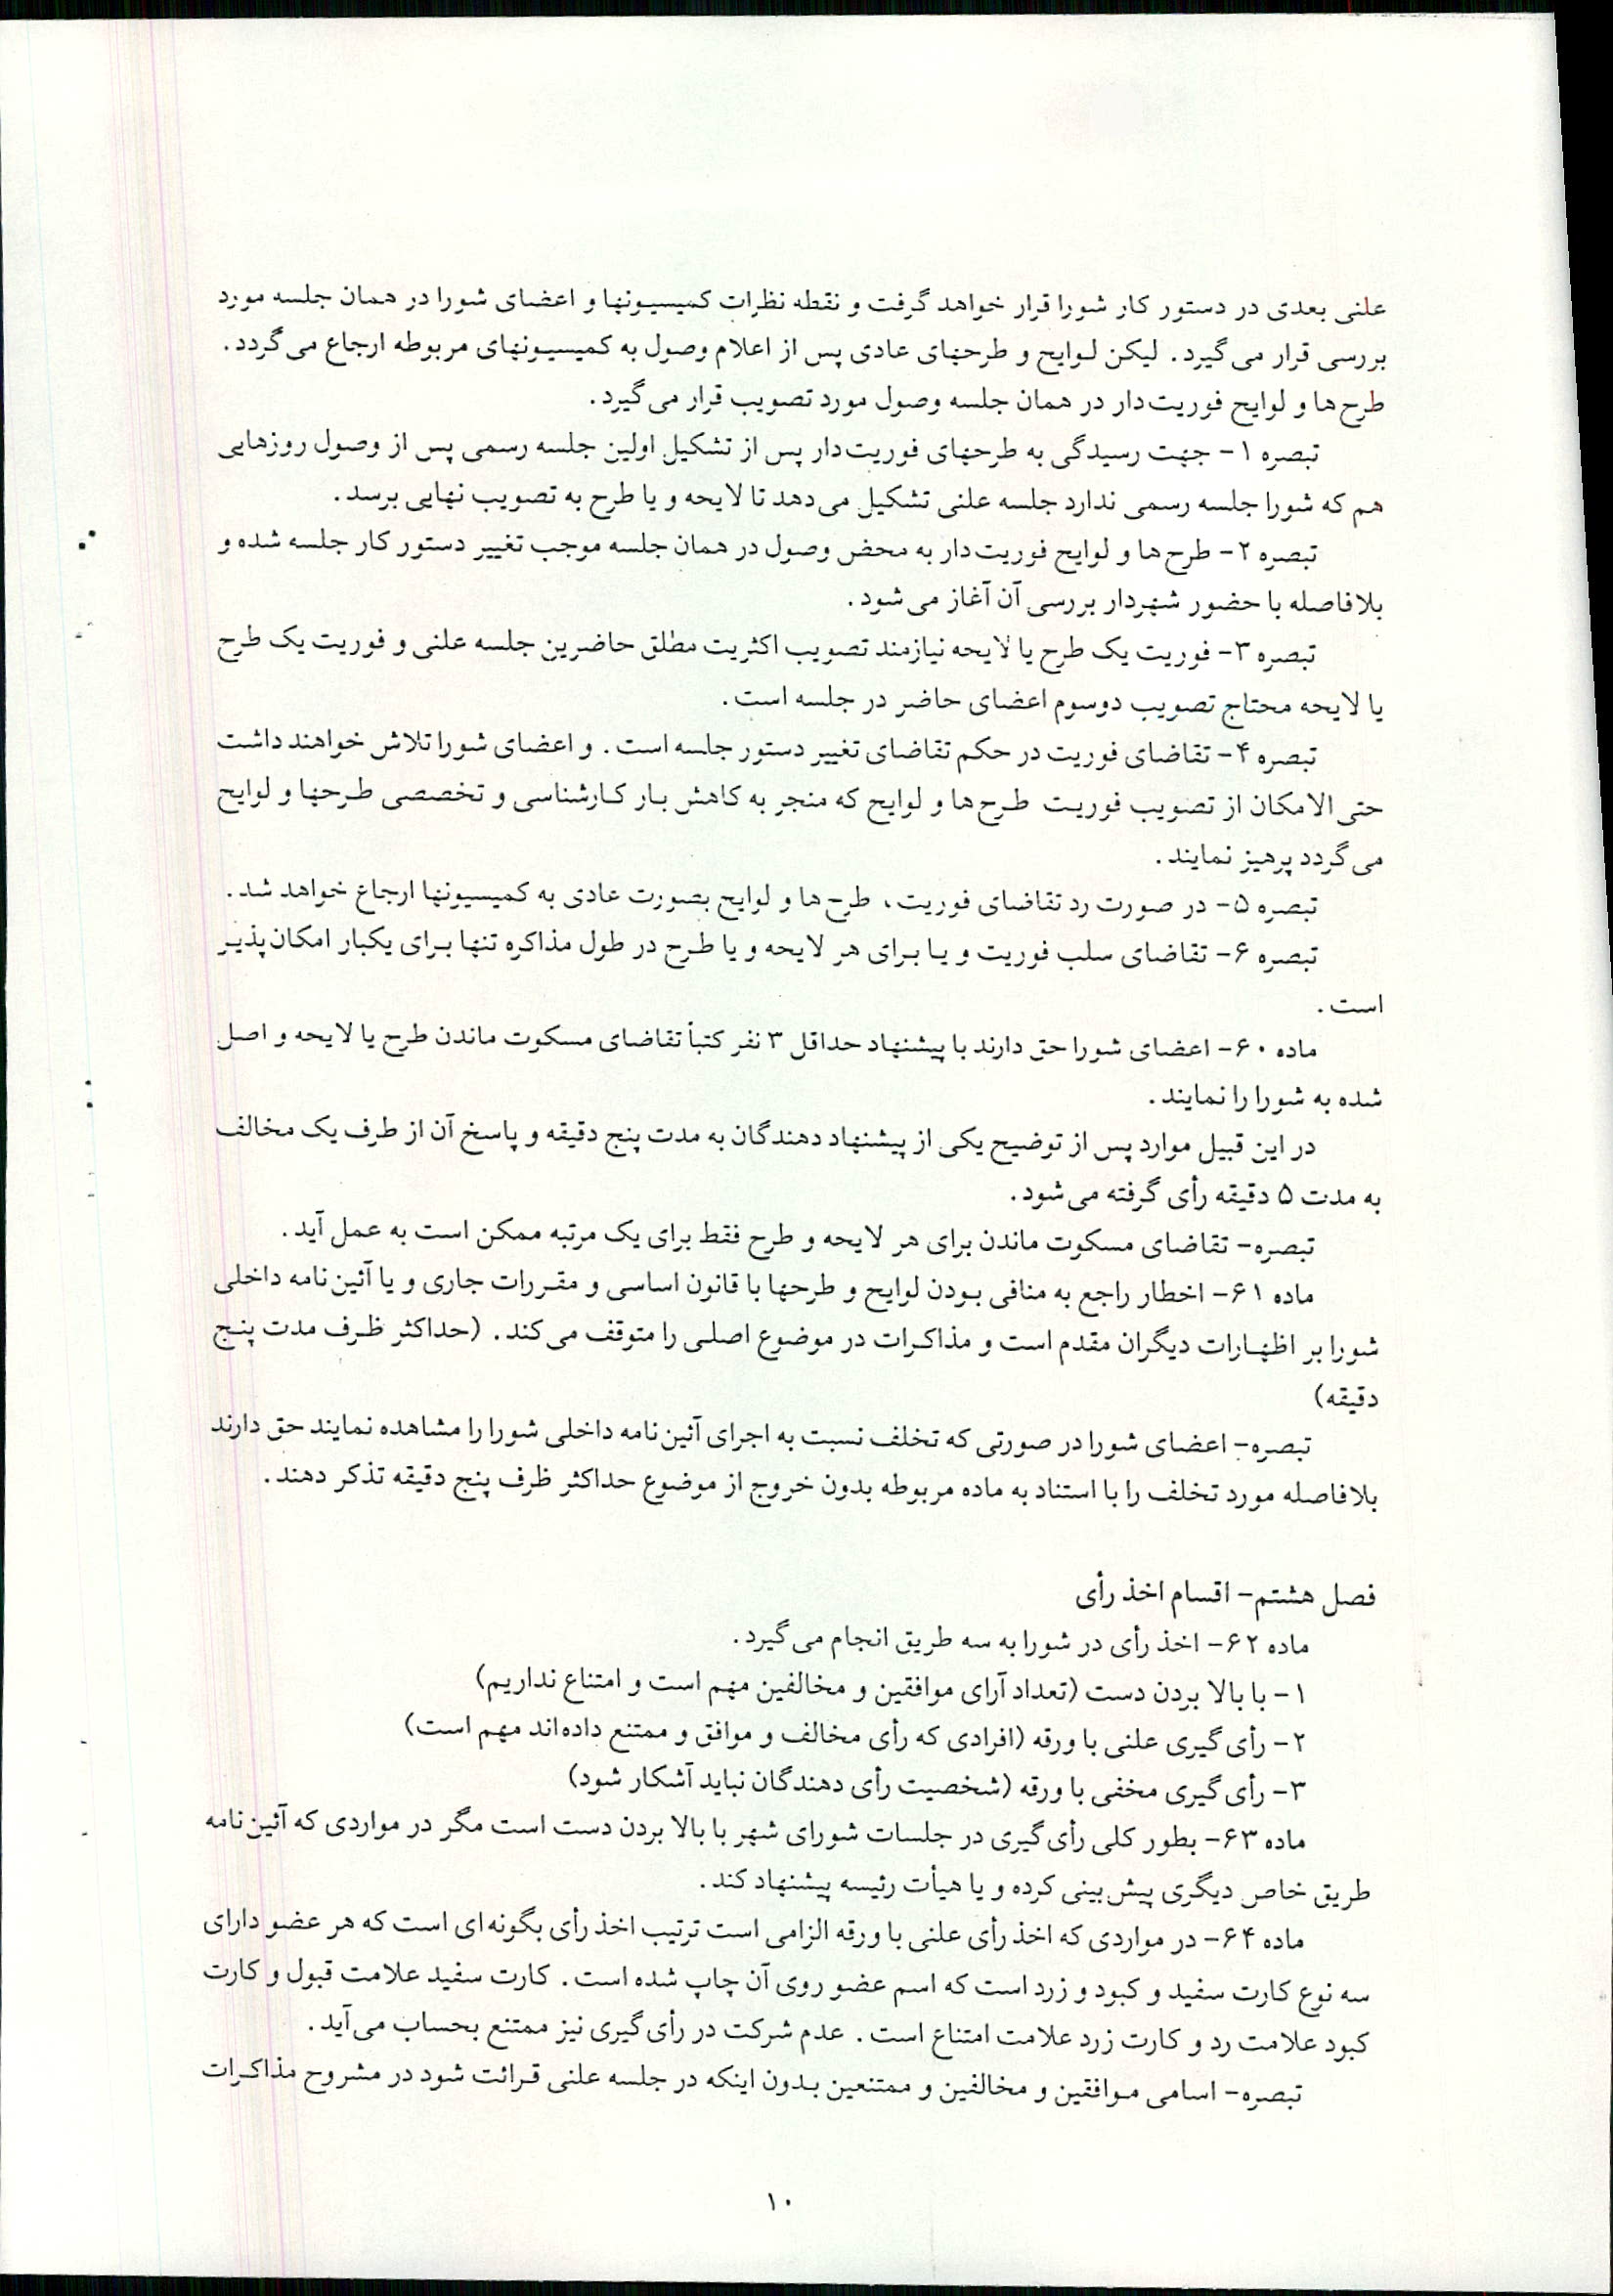 علنی بعدی در دستور کار شورا قرار خواهد گرفت و نقطه نظرات کمیسیونها و اعضای شورا در همان جلسه مورد
بررسی قرار می‌گیرد. لیکن لوایح و طرحهای عادی پس از اعلام وصول به کمیسیونهای مربوطه ارجاع می‌گردد.
طرح‌ها و لوایح فوریت‌دار در همان جلسه وصول مورد تصویب قرار می‌گیرد.
تبصره ۱- جهت رسیدگی به طرحهای فوریت‌دار پس از تشکیل اولین جلسه رسمی پس از وصول روزهایی
هم که شورا جلسه رسمی ندارد جلسه علنی تشکیل می‌دهد تا لایحه و یا طرح به تصویب نهایی برسد.
تبصره ۲- طرح‌ها و لوایح فوریت‌دار به محض وصول در همان جلسه موجب تغییر دستور کار جلسه شده و
بلافاصله با حضور شهردار بررسی آن آغاز می‌شود.
تبصره ۳- فوریت یک طرح یا لایحه نیازمند تصویب اکثریت مطلق حاضرین جلسه علنی و فوریت یک طرح
یا لایحه محتاج تصویب دوسوم اعضای حاضر در جلسه است.
تبصره ۴- تقاضای فوریت در حکم تقاضای تغییر دستور جلسه است. و اعضای شورا تلاش خواهند داشت
حتی الامکان از تصویب فوریت طرح‌ها و لوایح که منجر به کاهش بار کارشناسی و تخصصی طرحها و لوایح
می‌گردد پرهیز نمایند.
تبصره ۵- در صورت رد تقاضای فوریت، طرح‌ها و لوایح بصورت عادی به کمیسیونها ارجاع خواهد شد.
تبصره ۶- تقاضای سلب فوریت و یا برای هر لایحه و یا طرح در طول مذاکره تنها برای یکبار امکان‌پذیر
است.
ماده ۶۰- اعضای شورا حق دارند با پیشنهاد حداقل ۳ نفر کتباً تقاضای مسکوت ماندن طرح یا لایحه و اصل
شده به شورا را نمایند.
در این قبیل موارد پس از توضیح یکی از پیشنهاد دهندگان به مدت پنج دقیقه و پاسخ آن از طرف یک مخالف
به مدت ۵ دقیقه رأی گرفته می‌شود.
تبصره- تقاضای مسکوت ماندن برای هر لایحه و طرح فقط برای یک مرتبه ممکن است به عمل آید.
ماده ۶۱- اخطار راجع به منافی بودن لوایح و طرحها با قانون اساسی و مقررات جاری و یا آئین‌نامه داخلی
شورا بر اظهارات دیگران مقدم است و مذاکرات در موضوع اصلی را متوقف می‌کند. (حداکثر ظرف مدت پنج
دقیقه)
تبصره- اعضای شورا در صورتی که تخلف نسبت به اجرای آئین‌نامه داخلی شورا را مشاهده نمایند حق دارند
بلافاصله مورد تخلف را با استناد به ماده مربوطه بدون خروج از موضوع حداکثر ظرف پنج دقیقه تذکر دهند.
فصل هشتم- اقسام اخذ رأی
ماده ۶۲- اخذ رأی در شورا به سه طریق انجام می‌گیرد.
۱- با بالا بردن دست (تعداد آرای موافقین و مخالفین مهم است و امتناع نداریم)
۲- رأی‌گیری علنی با ورقه (افرادی که رأی مخالف و موافق و ممتنع داده‌اند مهم است)
۳- رأی‌گیری مخفی با ورقه (شخصیت رأی دهندگان نباید آشکار شود)
ماده ۶۳- بطور کلی رأی‌گیری در جلسات شورای شهر با بالا بردن دست است مگر در مواردی که آئین‌نامه
طریق خاص دیگری پیش‌بینی کرده و یا هیأت رئیسه پیشنهاد کند.
ماده ۶۴- در مواردی که اخذ رأی علنی با ورقه الزامی است ترتیب اخذ رأی بگونه‌ای است که هر عضو دارای
سه نوع کارت سفید و کبود و زرد است که اسم عضو روی آن چاپ شده است. کارت سفید علامت قبول و کارت
کبود علامت رد و کارت زرد علامت امتناع است. عدم شرکت در رأی‌گیری نیز ممتنع بحساب می‌آید.
تبصره- اسامی موافقین و مخالفین و ممتنعین بدون اینکه در جلسه علنی قرائت شود در مشروح مذاکرات
۱۰